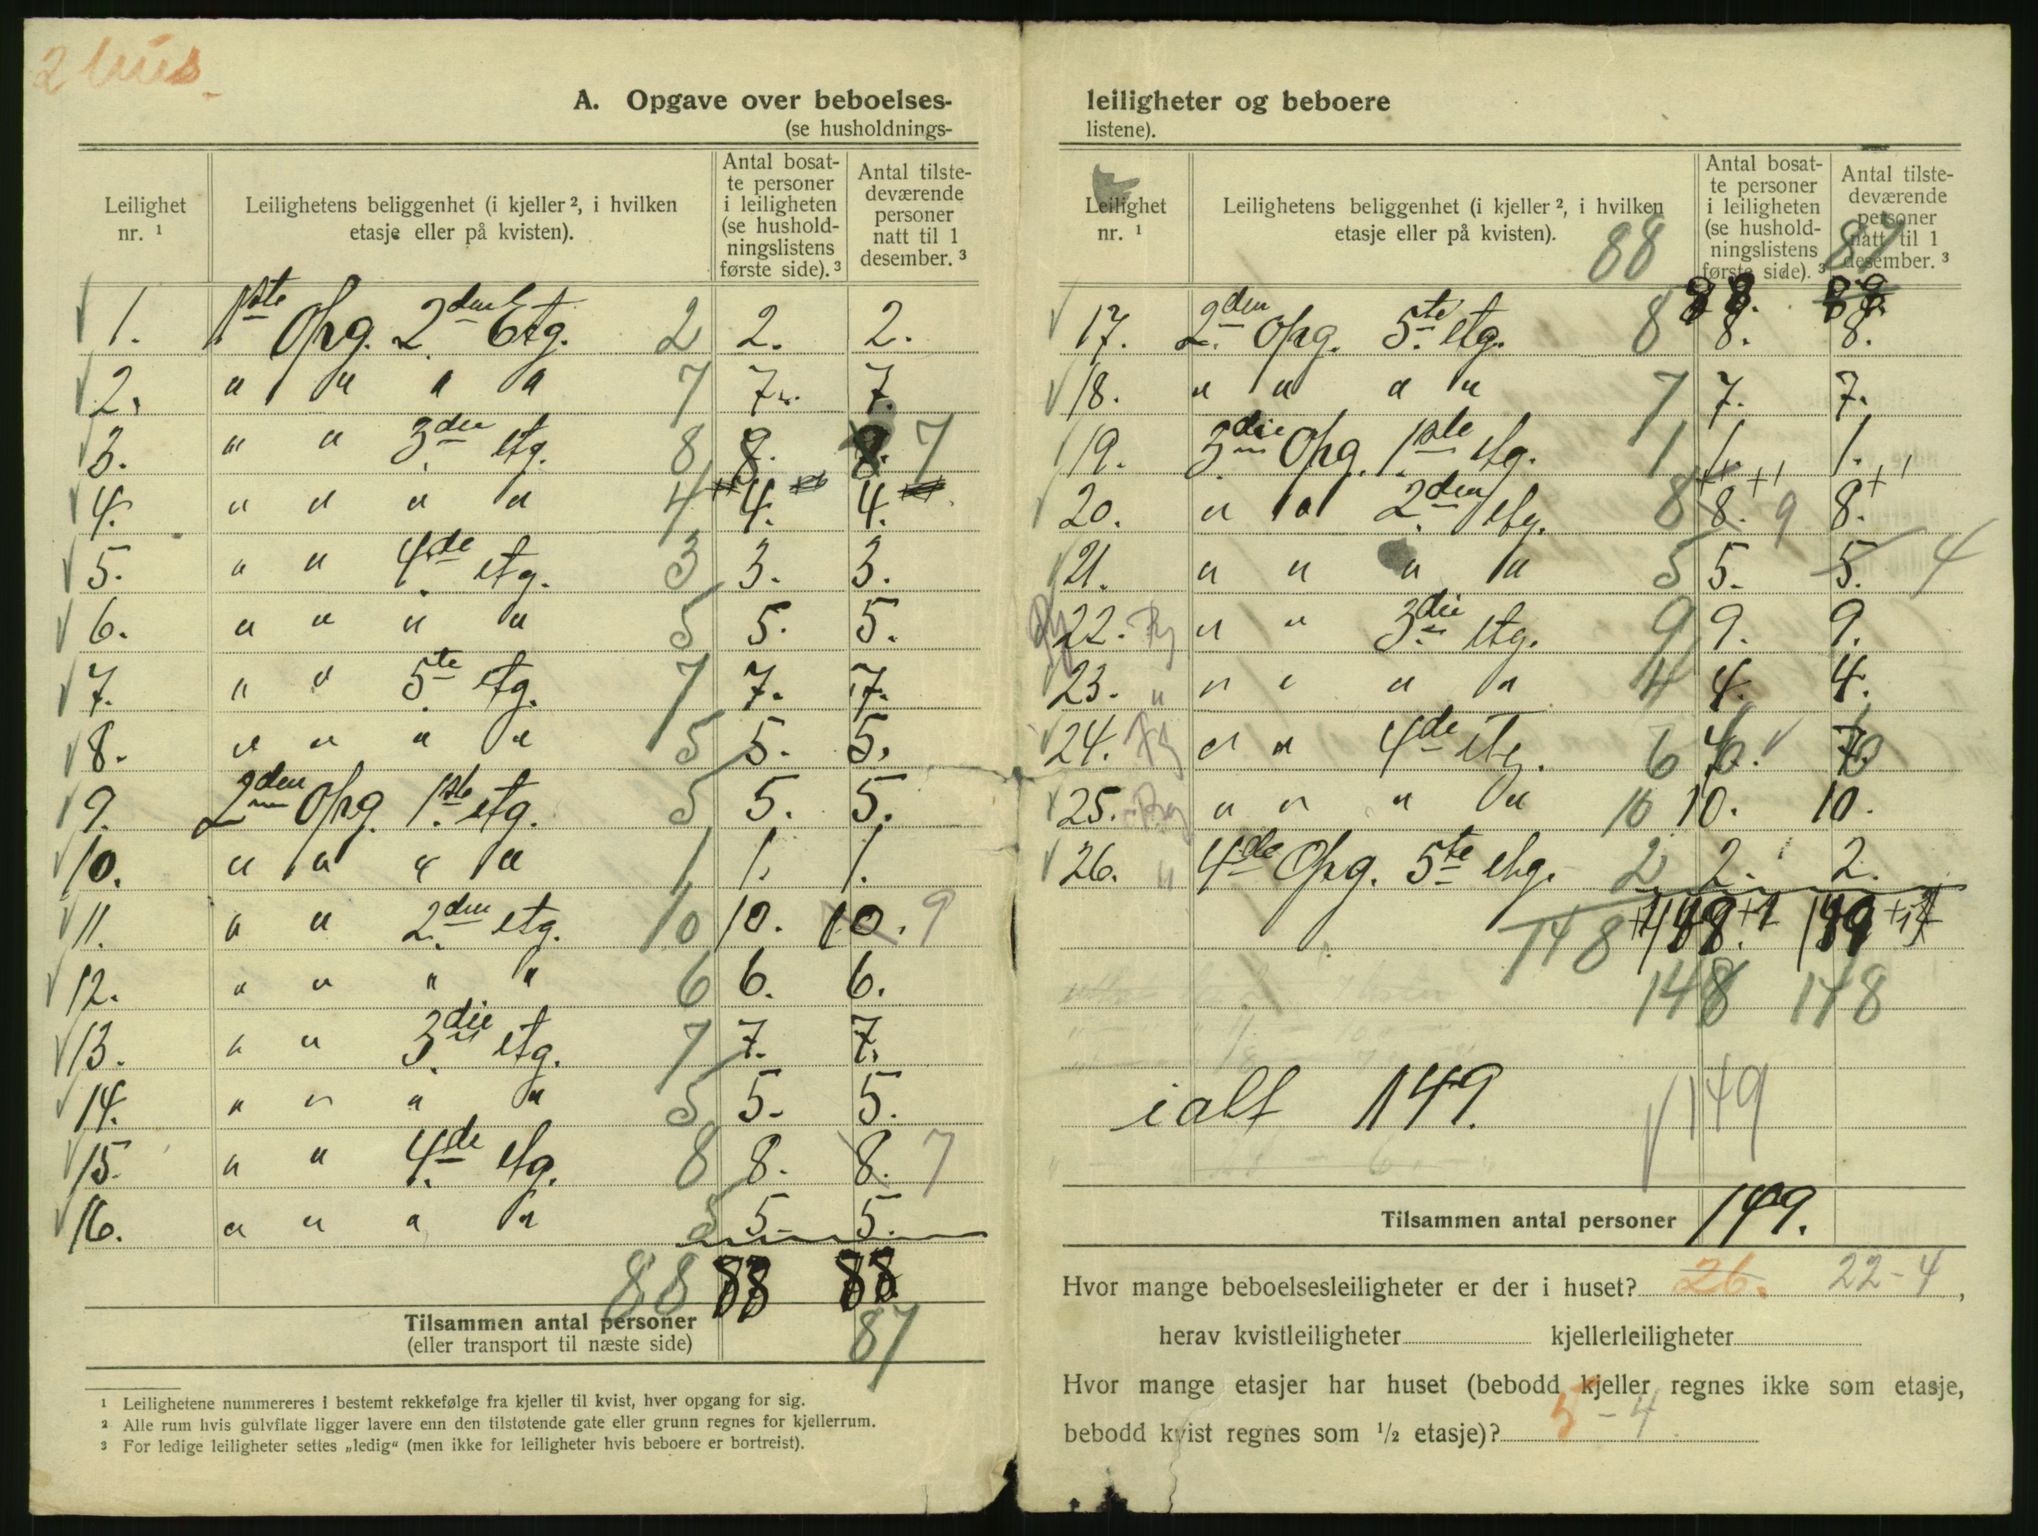 2 hus.
A. Opgave over beboelses-
(se husholdnings-
Leilighet nr. ¹
Leilighetens beliggenhet (i kjeller ², i hvilken etasje eller på kvisten).
Antal bosat-te personer i leiligheten (se hushold-ningslistens første side). ³
Antal tilste-deværende personer natt til 1 desember. ³
√ 1. 1ste Opg. 2den Etg. 2 2. 2.
√ 2. " " " " 7 7. 7.
√ 3. " " 3die etg. 8 8. 8. 7
√ 4. " " " " 4 4. 4.
√ 5. " " 4de etg. 3 3. 3.
√ 6. " " " " 5 5. 5.
√ 7. " " 5te etg. 7 7. 7.
√ 8. " " " " 5 5. 5.
√ 9. 2den Opg. 1ste etg. 5 5. 5.
√ 10. " " " " 1 1. 1.
√ 11. " " 2den etg. 10 10. 10. 9
√ 12. " " " " 6 6. 6.
√ 13. " " 3die etg. 7 7. 7.
√ 14. " " " " 5 5. 5.
√ 15. " " 4de etg. 8 8. 8. 7
√ 16. " " " " 5 5. 5.
88 88 88
Tilsammen antal personer
(eller transport til næste side) 87
¹ Leilighetene nummereres i bestemt rekkefølge fra kjeller til kvist, hver opgang for sig.
² Alle rum hvis gulvflate ligger lavere enn den tilstøtende gate eller grunn regnes for kjellerrum.
³ For ledige leiligheter settes „ledig“ (men ikke for leiligheter hvis beboere er bortreist).
leiligheter og beboere
listene).
Leilighet nr. ¹
Leilighetens beliggenhet (i kjeller ², i hvilken etasje eller på kvisten).
Antal bosat-te personer i leiligheten (se hushold-ningslistens første side). ³
Antal tilste-deværende personer natt til 1 desember. ³
88 87
88. 88.
√ 17. 2den Opg. 5te etg. 8 8. 8.
√ 18. " " " " 7 7. 7.
√ 19. 3die Opg. 1ste etg. 1 1. 1.
√ 20. " " 2den etg. 8 8. +1 9 8. +1
√ 21. " " " " 5 5. 5. 4
22. " " 3die etg. 9 9. 9.
23. " " " " " 4 4. 4.
√ 24. " " 4de etg. 6 √
√ 25. " " " " 10 10. 10.
√ 26. " 4de Opg. 5te etg. 2 2. 2.
148
148 148
i alt 149.
√ 149
Tilsammen antal personer 149.
Hvor mange beboelsesleiligheter er der i huset? 26. 22-4,
herav kvistleiligheter kjellerleiligheter
Hvor mange etasjer har huset (bebodd kjeller regnes ikke som etasje,
bebodd kvist regnes som ½ etasje)? 5-4